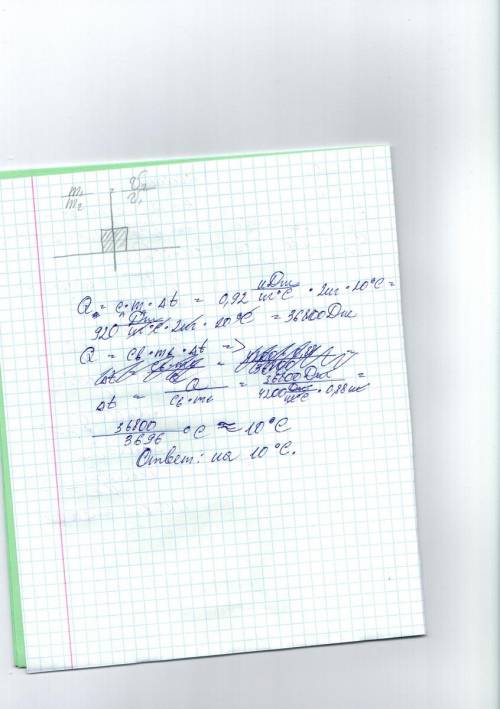 m₁/m₂ = V₂/V₁
Q = c · m · Δt = 0,92 кДж/кг°C · 2кг · 20°C =
920 Дж/кг°C · 2кг · 20°C = 36800Дж
Q = cв · mв · Δt =>
Δt = Q/cв · mв = 36800Дж/4200 Дж/кг°C · 0,88кг =
36800/3696 °C ≈ 10°C
Ответ: на 10°C.